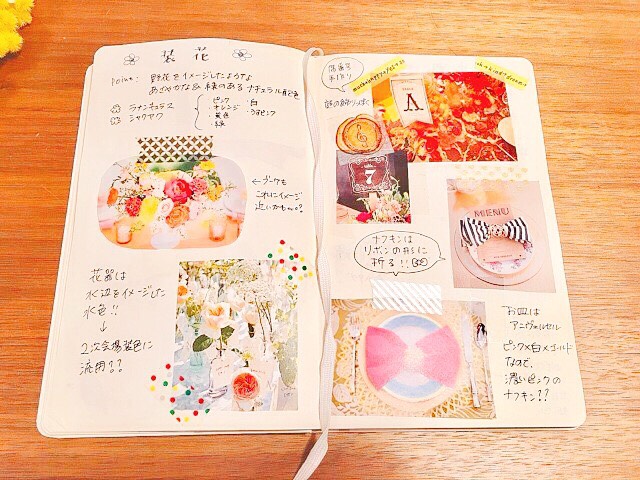 装花
point: 野花をイメージしたような
あざやかな&緑のあるナチュラル装色
ラナンキュラス
シャクヤク
・ピンク
・オレンジ
・黄色
・緑
・白
・うすピンク
←ブーケも
これにイメージ
近いかも
花器は
水辺をイメージした
水色!!
↓
2次会場装色に
流用??
席番号
手作り
A
7
MENU
ナフキンは
リボンの形に
折る!!
お皿は
アニヴェルセル
ピンク×白×ゴールド
なので、
濃いピンクの
ナフキン??